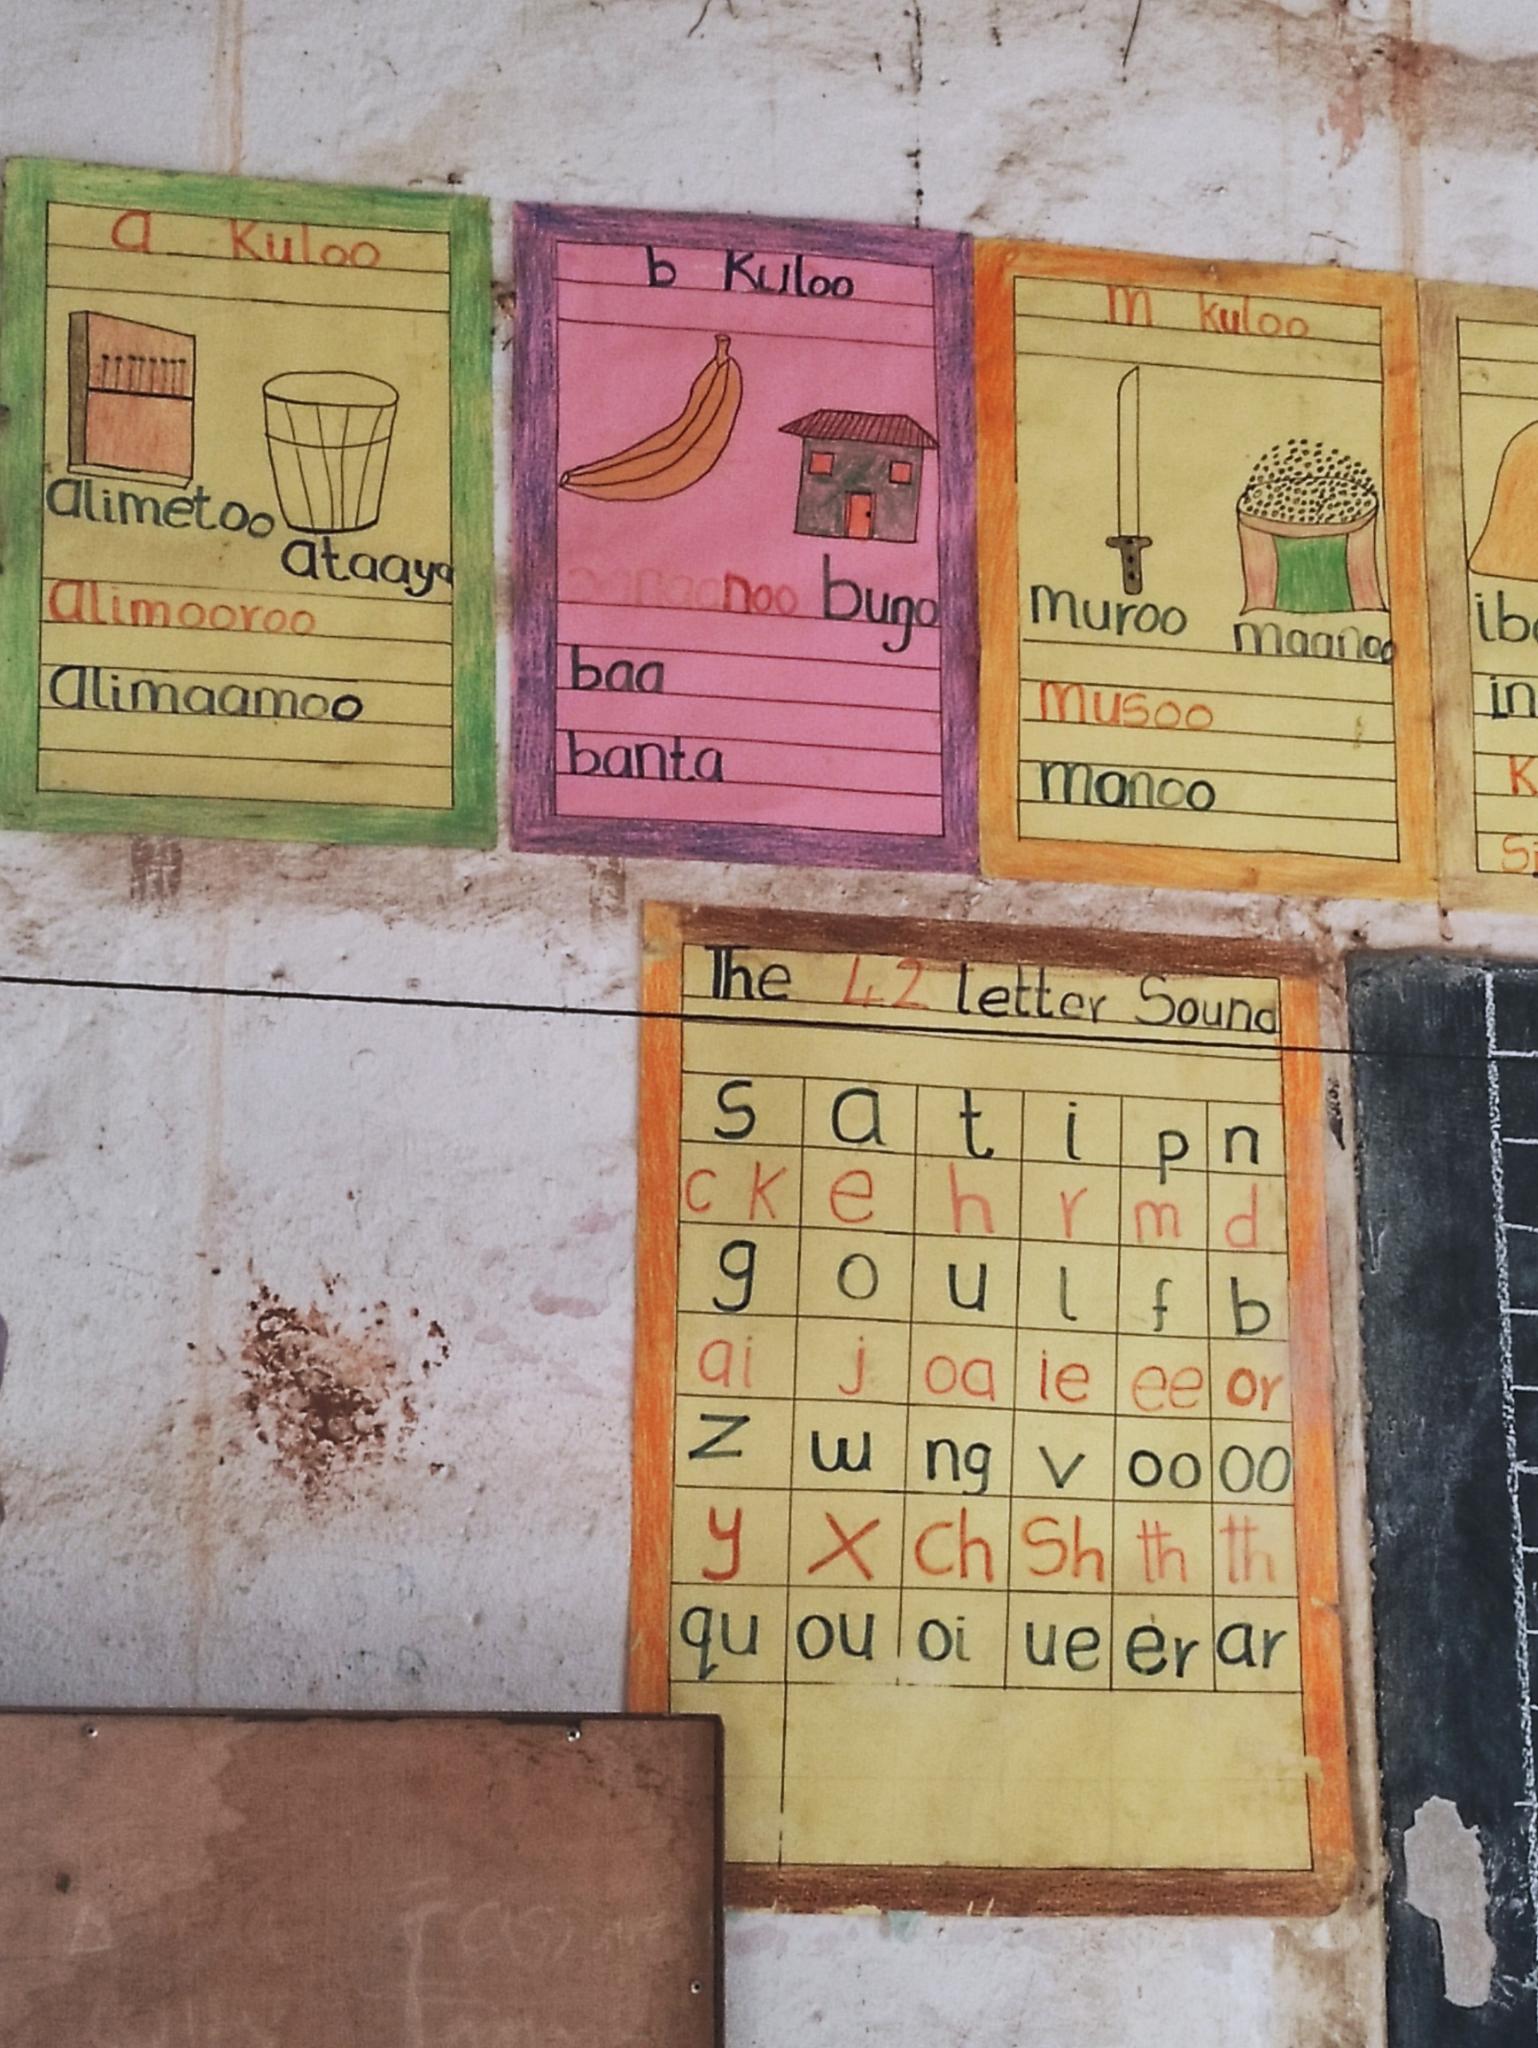 a Kuloo
alimetoo
ataaya
alimooroo
alimaamoo
b Kuloo
banaanoo buŋo
baa
banta
m kuloo
muroo
maanoo
musoo
manoo
The 42 letter Sound
s a t i p n
c k e h r m d
g o u l f b
ai j oa ie ee or
z w ng v oo oo
y x ch sh th th
qu ou oi ue er ar